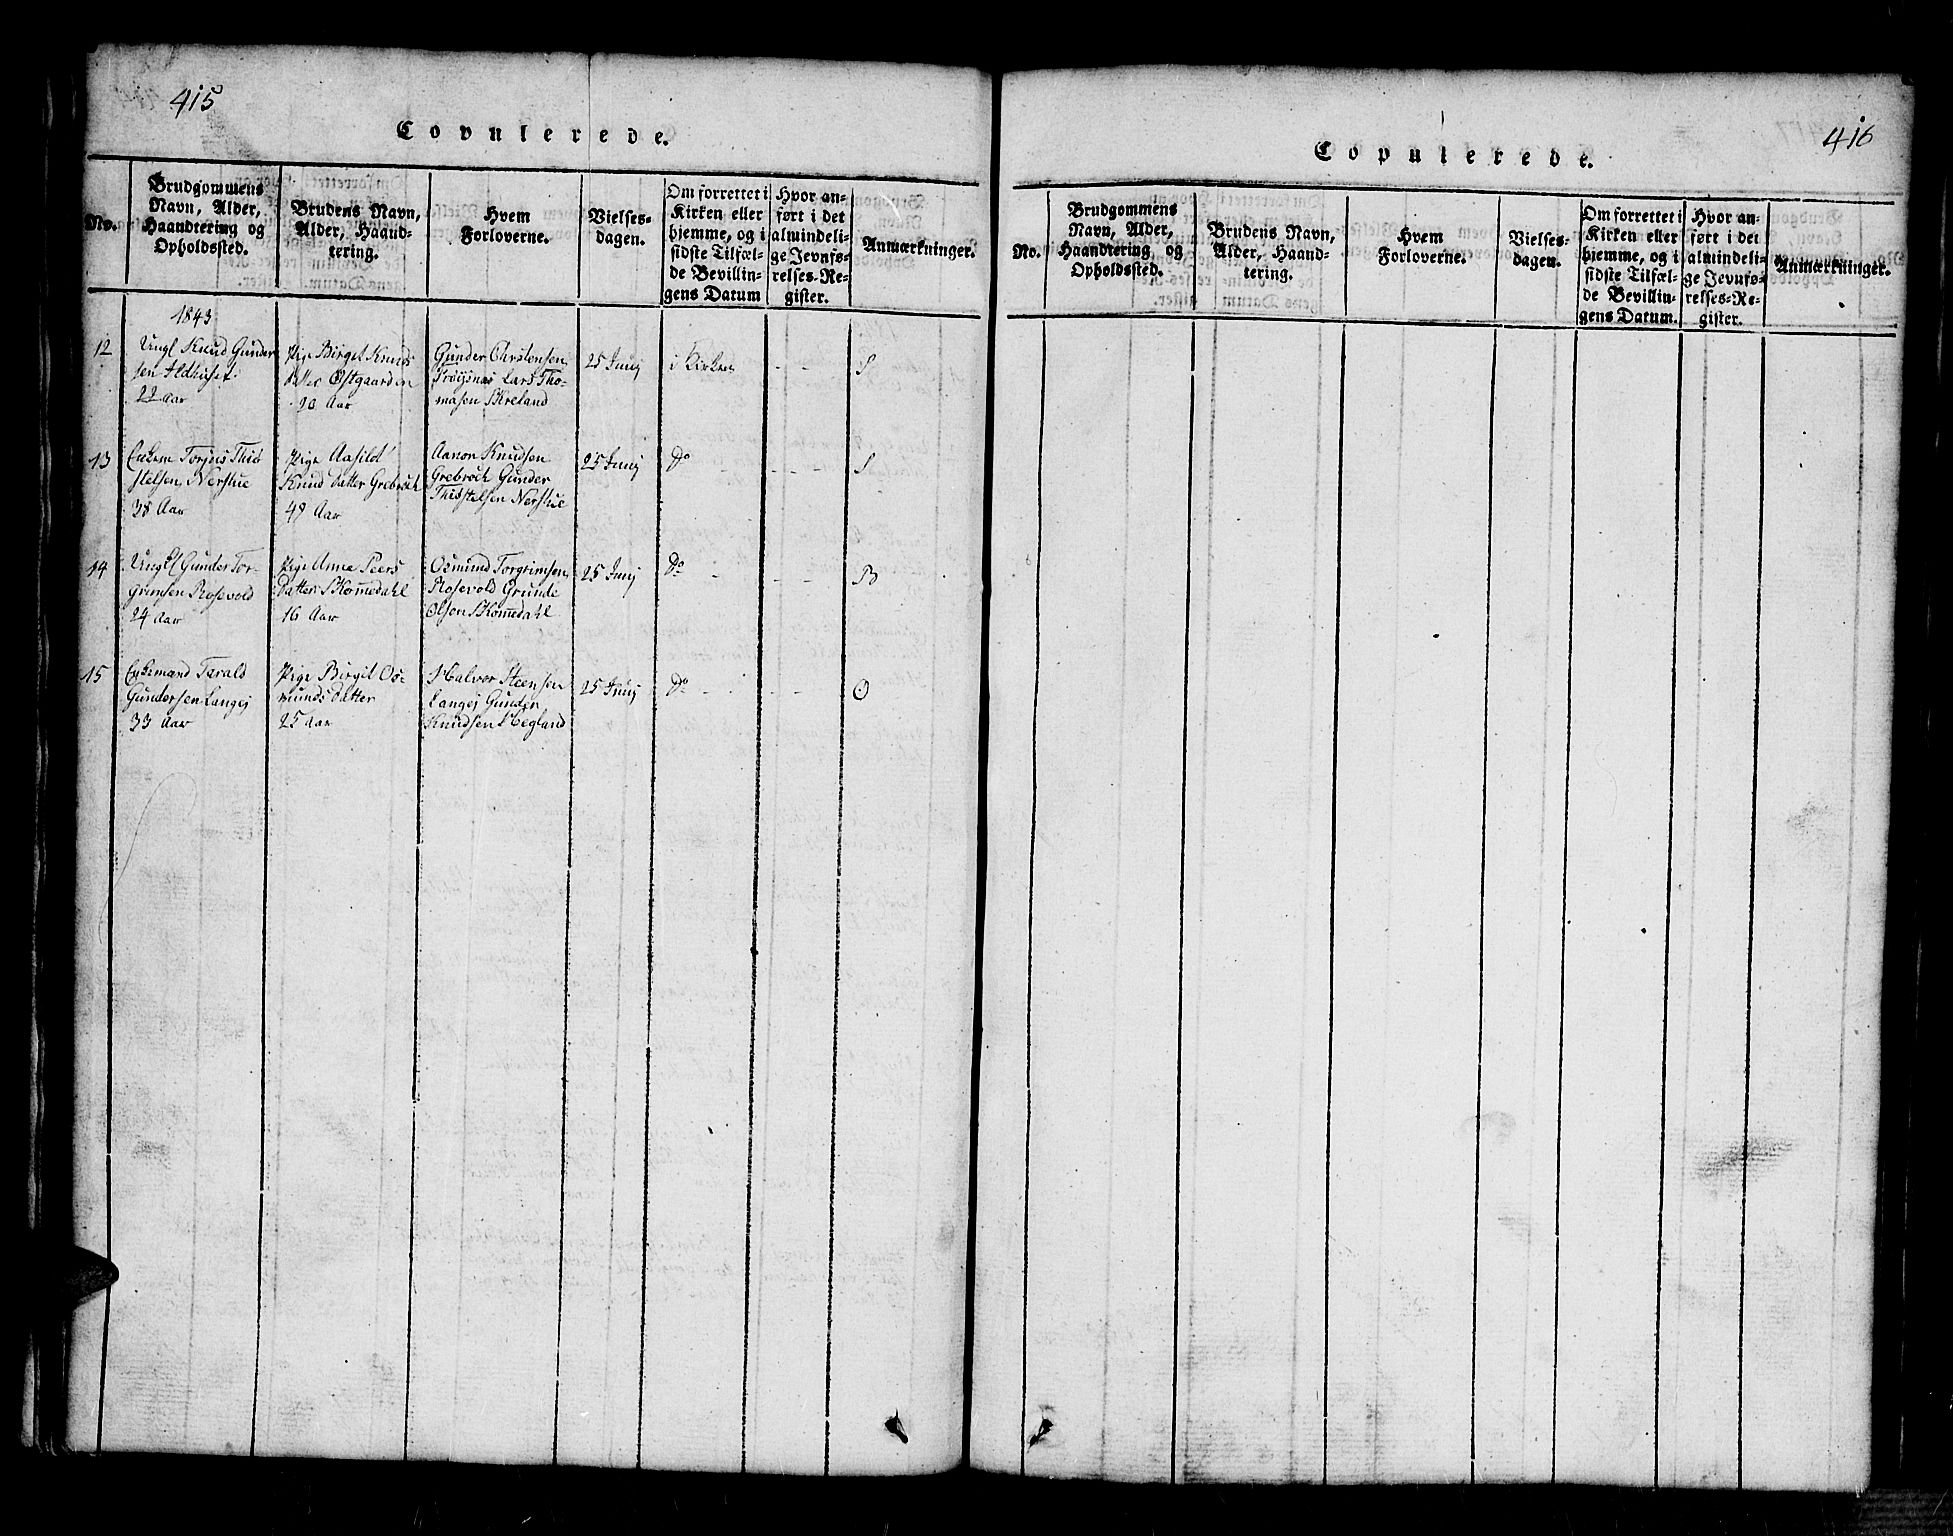 415
Copulerede.
No.
Brudgommens
Navn, Alder,
Haandtering og
Opholdssted.
Brudens Navn,
Alder, Haand-
tering.
Hvem
Forloverne.
Vielses-
dagen.
Om forrettet i
Kirken eller
hjemme, og i
sidste Tilfæl-
de Bevillin-
gens Datum
Hvor an-
ført i det
almindeli-
ge Jevnfø-
relses-Re-
gister.
Anmærkninger.
1843
12
Ungk Knud Gunder
sen
22 Aar
Pige Birget Knuds
datter Østgaarden
20 Aar
Gunder Christensen
Frøisnæs Lars Tho-
masen Skreland
25 Junij
i Kirken
S
13
Enkem Torjus This
stelsen Nerstue
38 Aar
Pige Aasild
Knud datter Grebrok
49 Aar
Aanon Knudsen
Grebrok Gunder
Thisstelsen Nerstue
25 Junij
Do
S
14
Ungk Gunder Tor-
grimsen Rosevold
24 Aar
Pige Anne Peers
Datter Skomedahl
16 Aar
Osmund Torgrimsen
Rosevold Grunde
Olsen Skomedahl
25 Junij
Do
B
15
Enkemand Tarald
Gundersen Langej
33 Aar
Pige Birgit Os-
munds Datter
25 Aar
Halvor Steensen
Langej Gunder
Knudsen Hegland
25 Junij
Do
O
416
Copulerede.
No.
Brudgommens
Navn, Alder,
Haandtering og
Opholdssted.
Brudens Navn,
Alder, Haand-
tering.
Hvem
Forloverne.
Vielses-
dagen.
Om forrettet i
Kirken eller
hjemme, og i
sidste Tilfæl-
de Bevillin-
gens Datum.
Hvor an-
ført i det
almindeli-
ge Jevnfø-
relses-Re-
gister.
Anmærkninger.